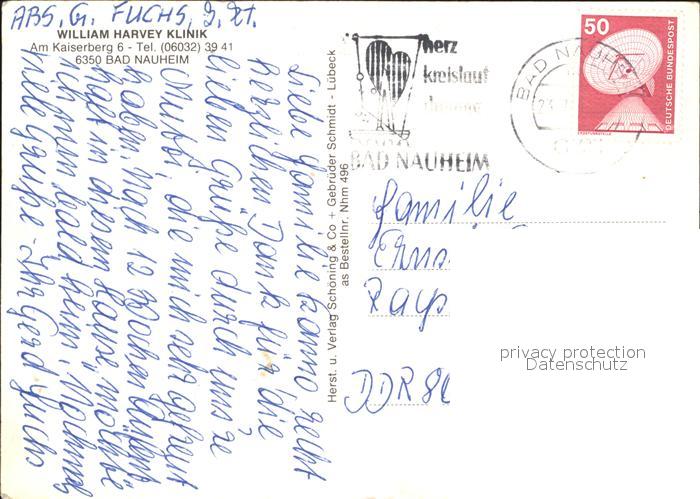 ABS. G. FUCHS, z. Zt.
WILLIAM HARVEY KLINIK
Am Kaiserberg 6 - Tel. (06032) 39 41
6350 BAD NAUHEIM
Liebe Familie Hanno recht
herzlichen Dank für die
lieben Grüße durch uns're
Mutti, die mich sehr gefreut
haben. Nach 12 Wochen
halt in diesem Hause möchte
ich nun bald heim! Nochmal
viele Grüße - Ihr Gerd Fuchs
Herst. u. Verlag Schöning & Co + Gebrüder Schmidt - Lübeck
as Bestellnr. Nhm 496
herz
kreislauf
BAD NAUHEIM
BAD NAUHEIM
50
DEUTSCHE BUNDESPOST
ERDFUNKSTELLE
Familie
DDR 86
privacy protection
Datenschutz